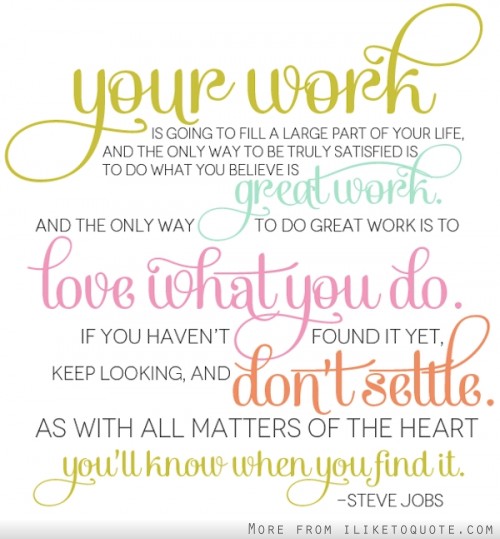 your work
IS GOING TO FILL A LARGE PART OF YOUR LIFE,
AND THE ONLY WAY TO BE TRULY SATISFIED IS
TO DO WHAT YOU BELIEVE IS
great work.
AND THE ONLY WAY TO DO GREAT WORK IS TO
love what you do.
IF YOU HAVEN'T FOUND IT YET,
KEEP LOOKING, AND don't settle.
AS WITH ALL MATTERS OF THE HEART
you'll know when you find it.
–STEVE JOBS
MORE FROM ILIKETOQUOTE.COM